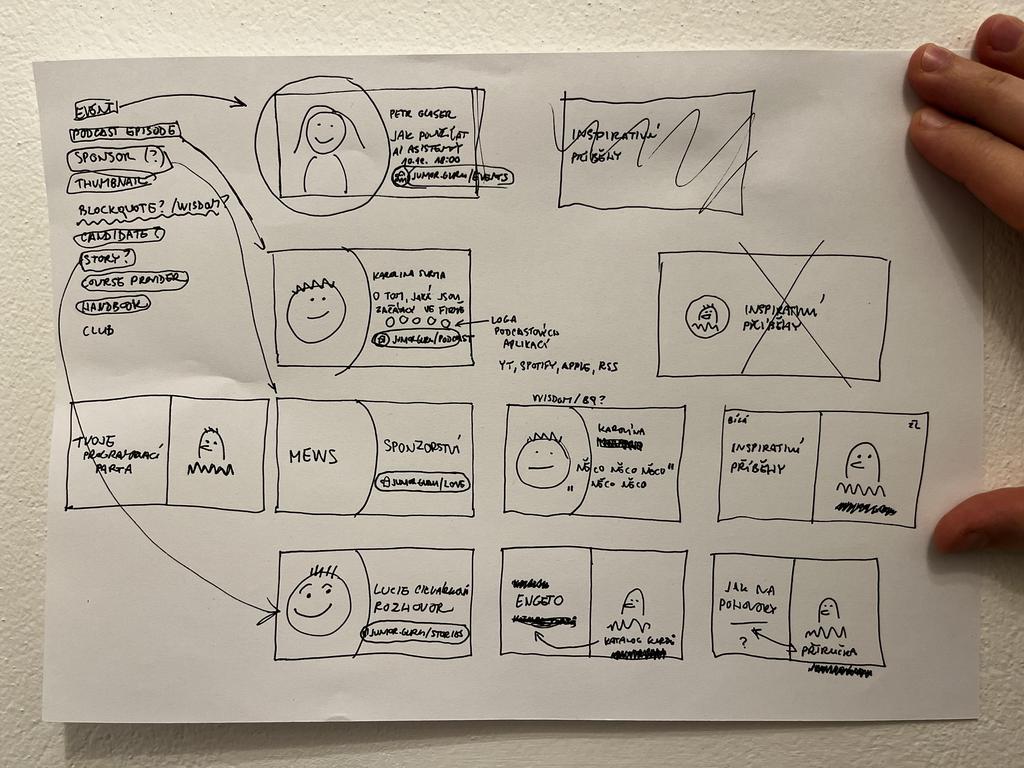 EVENT
PODCAST EPISODE
SPONSOR (?)
THUMBNAIL
BLOCKQUOTE? /WISDOM?
CANDIDATE?
STORY?
COURSE PROVIDER
HANDBOOK
CLUB
PETR GLASER
JAK POUŽÍVAT
AI ASISTENTY
10.12. 18:00
JUNIOR.GURU/EVENTS
INSPIRATIVNÍ
PŘÍBĚHY
KAROLINA SURMA
O TOM, JAKÉ JSOU
ZAČÁTKY VE FIRMĚ
JUNIOR.GURU/PODCAST
LOGA
PODCASTOVÝCH
APLIKACÍ
YT, SPOTIFY, APPLE, RSS
INSPIRATIVNÍ
PŘÍBĚHY
TVOJE
PROGRAMOVACÍ
PARTA
MEWS
SPONZORSTVÍ
JUNIOR.GURU/LOVE
WISDOM/BQ?
KAROLÍNA
NĚCO NĚCO NĚCO"
" NĚCO NĚCO
BÍLÁ
ŽL
INSPIRATIVNÍ
PŘÍBĚHY
LUCIE
ROZHOVOR
JUNIOR.GURU/STORIES
ENGETO
KATALOG KURZŮ
JAK NA
POHOVORY
?
PŘÍRUČKA